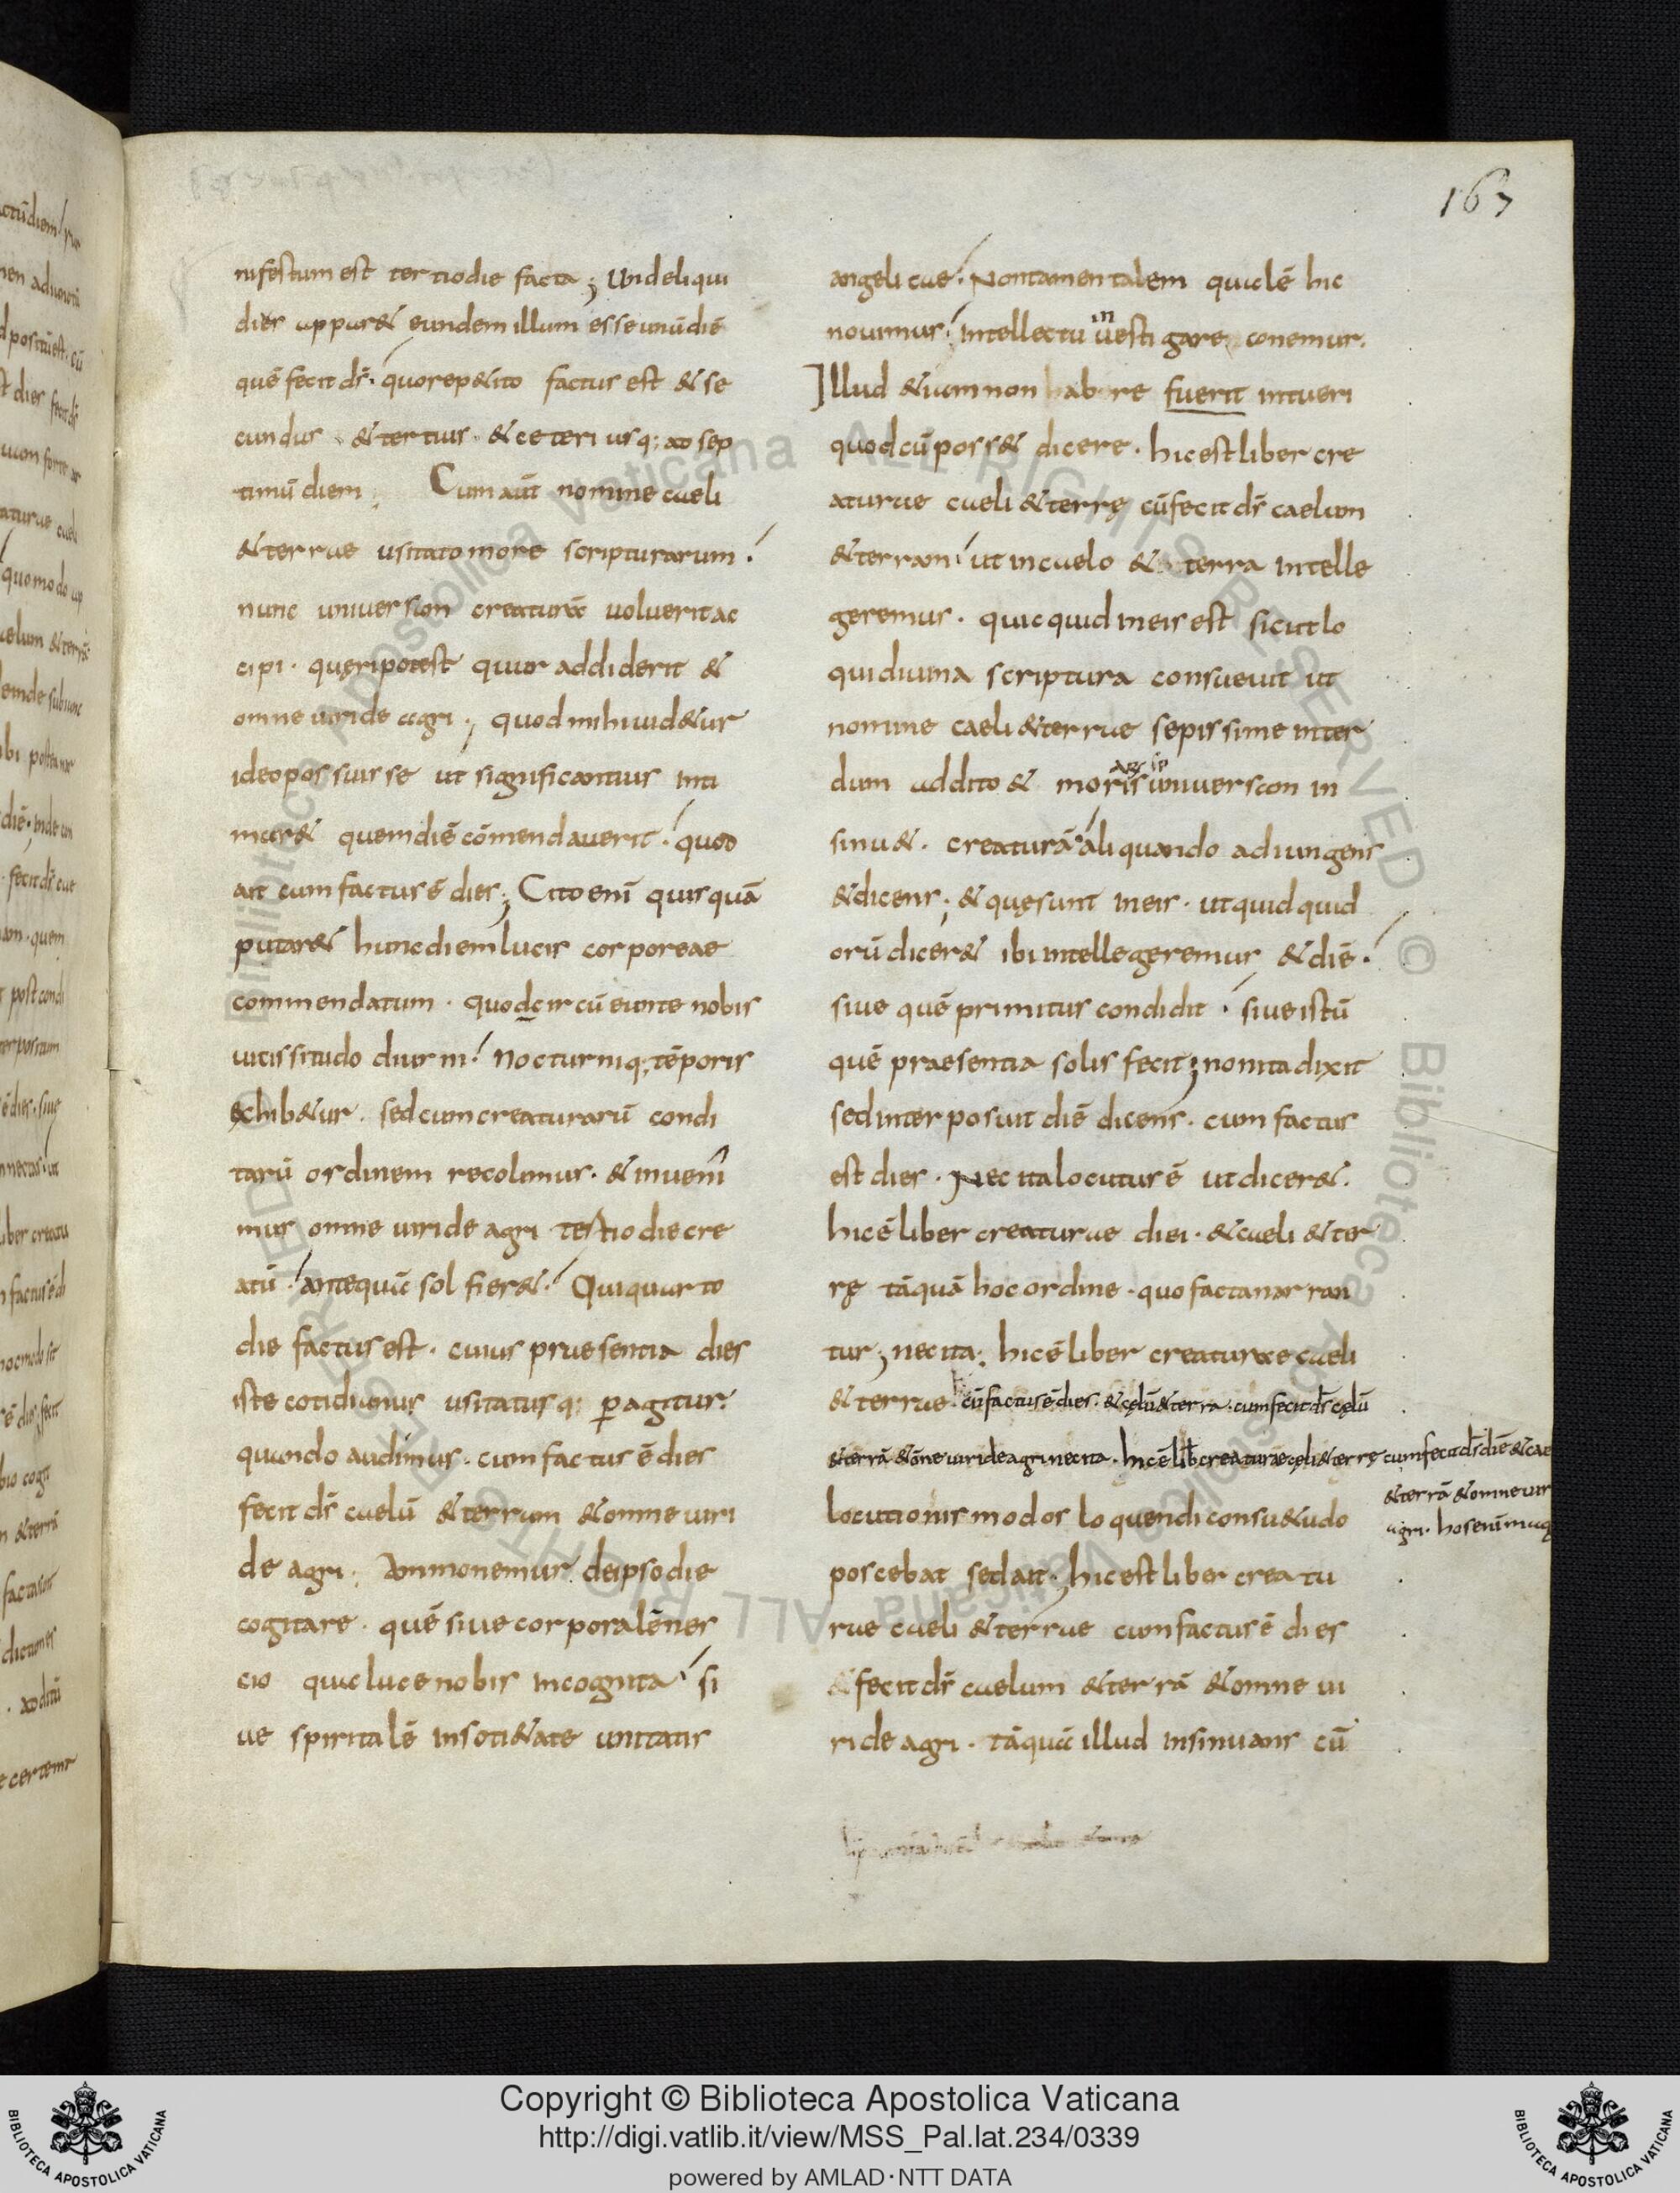 163
nifestum est tertio die facta; Unde liqui
dier apparet eundem illum esse unū diē
quē fecit dr̄. quo repetito factus est & se
cundus & tertius & ceteri usq; ad sep
timū diem. Cum aūt nomine caeli
& terrae usitato more scripturarum.
nunc uniuersam creaturā uoluerit ac
cipi. quęri potest quur addiderit &
omne uiride agri; quod mihi uidetur
ideo posuisse ut significantius inti
maret quem diē cōmendauerit. quod
ait cum factus ē dies; Cito enī quisquā
putaret hunc diem lucis corporeae
commendatum. quo circūeunte nobis
uicissitudo diurni nocturniq; tēporis
exhibetur. sed cum creaturarū condi
tarū ordinem recolimus. & inueni
mus omne uiride agri tertio die cre
atū. antequā sol fieret. Qui quarto
die factus est. cuius praesentia dies
iste cotidianus usitatusq; peragitur.
quando audimus. cum factus ē dies
fecit ds̄ caelū & terram & omne uiri
de agri. Ammonemur de ipso die
cogitare. quē siue corporalē nes
cio qua luce nobis incognita si
ue spiritalē in sotietate unitatis
angelicae. Non tamen talem qualē hic
nouimus. intellectu inuestigare conemur.
Illud etiam non fuerit intueri
quod cū posset dicere. hic est liber cre
aturae caeli & terrę cū fecit ds̄ caelum
& terram. ut in caelo & terra intelle
geremus. quicquid in eis est sicut lo
qui diuina scriptura consueuit ut
nomine caeli & terrae sepissime inter
dum addito & maris uniuersam in
sinuet. creaturā aliquando adiungens
& dicens; & quę sunt in eis. ut quidquid
orū diceret ibi intellegeremus & diē.
siue quē primitus condidit. siue istū
quē praesentia solis fecit; non ita dixit
sed interposuit diē dicens. cum factus
est dies. Nec ita locutus ē ut diceret.
hic ē liber creaturae diei. & caeli & ter
rę tāquā hoc ordine. quo facta narran
tur; nec ita; hic ē liber creaturae caeli
& terrae. cū factus ē dies. & cęlū & terra. cum fecit ds̄ cęlū
& terrā & ōne uiride agri nec ita. hic ē lib creaturae cęli & terrę cum fecit ds̄ diē & cae
& terrā & omne uir
agri. hos enī mag
locutionis modos loquendi consuetudo
poscebat sed ait. hic est liber creatu
rae caeli & terrae cum factus ē dies
& fecit ds̄ caelum & terrā & omne ui
ride agri. tāquā illud insinuans cū
Copyright © Biblioteca Apostolica Vaticana
http://digi.vatlib.it/view/MSS_Pal.lat.234/0339
powered by AMLAD·NTT DATA
BIBLIOTECA APOSTOLICA VATICANA
BIBLIOTECA APOSTOLICA VATICANA